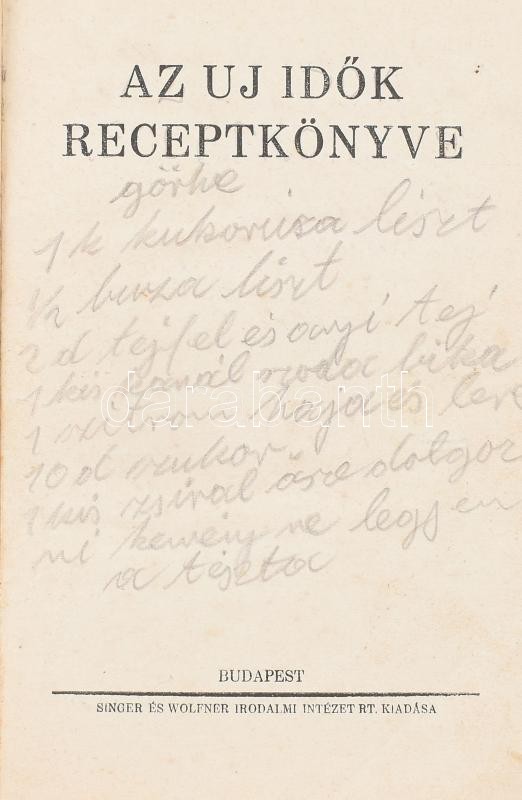 AZ UJ IDŐK
RECEPTKÖNYVE
görhe
1 k kukoricza liszt
1/2 buza liszt
2 d tejfel és anyi tej
1 kis kanál szoda bika
1 czitrom haja és leve
10 d cukor
1 kis zsiral ősze dolgoz
ni kemény ne legyen
a tészta
darabanth
BUDAPEST
SINGER ÉS WOLFNER IRODALMI INTÉZET RT. KIADÁSA